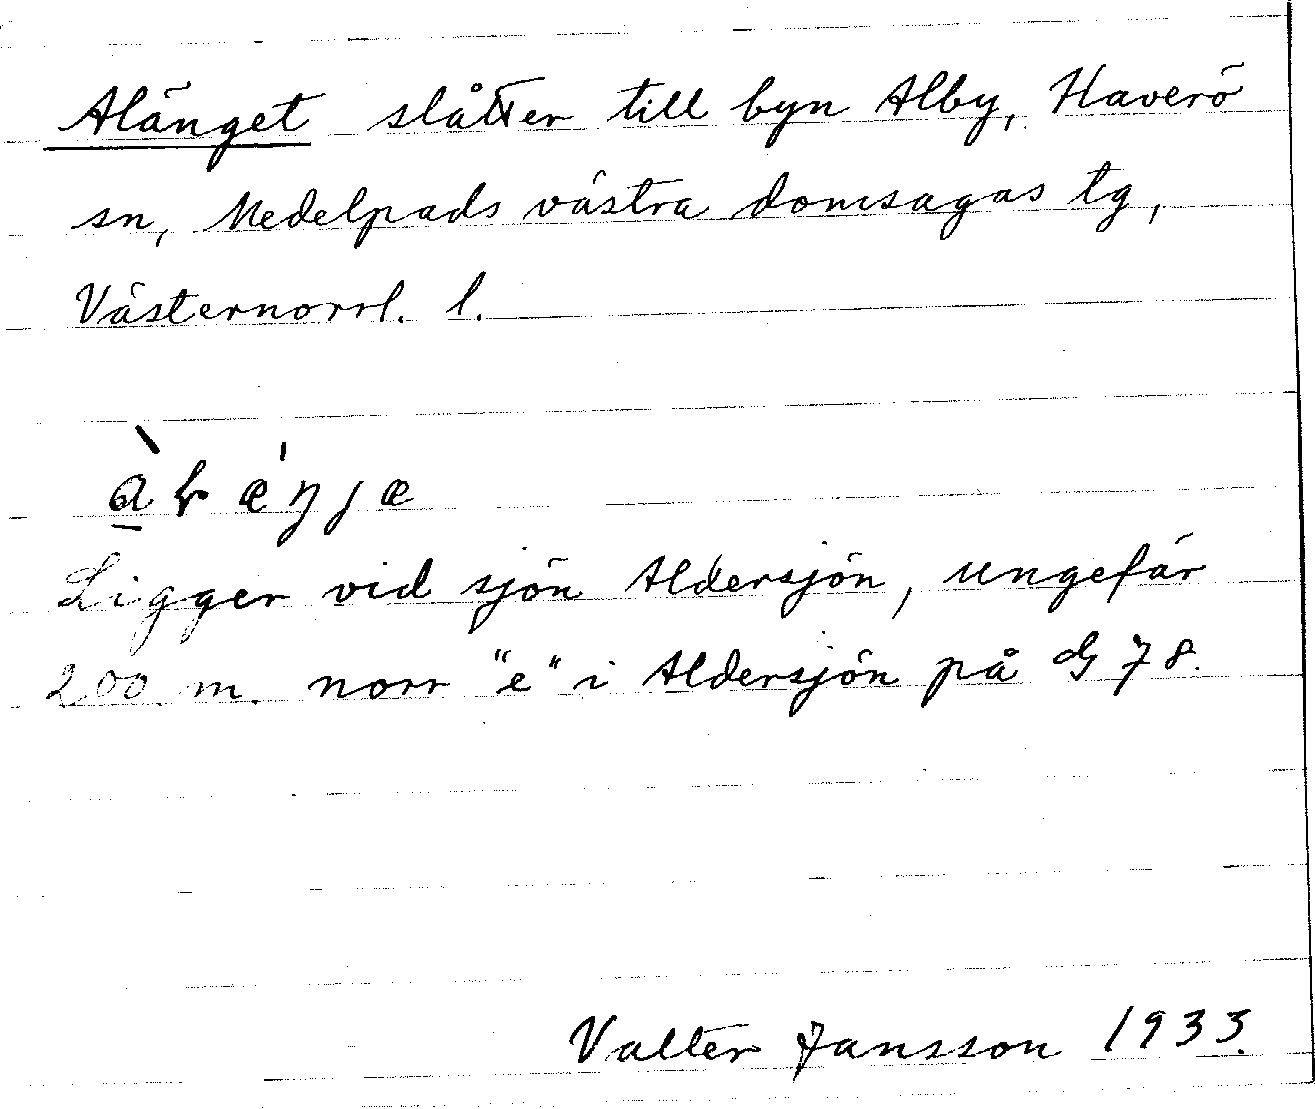 Alänget slåtter till byn Alby, Haverö
sn, Medelpads västra domsagas tg,
Västernorrl. l.
Ligger vid sjön Aldersjön, ungefär
200 m. norr "e" i Aldersjön på G 78.
Valter Jansson 1933.